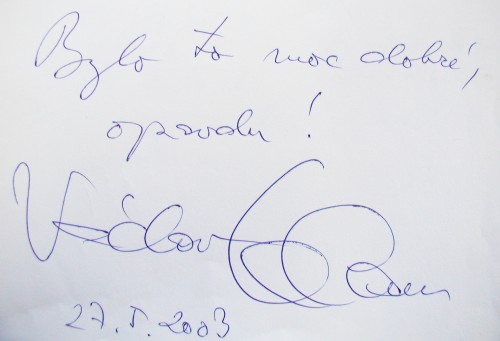 Bylo to moc dobré,
opravdu!
Václav Klaus
27. I. 2003